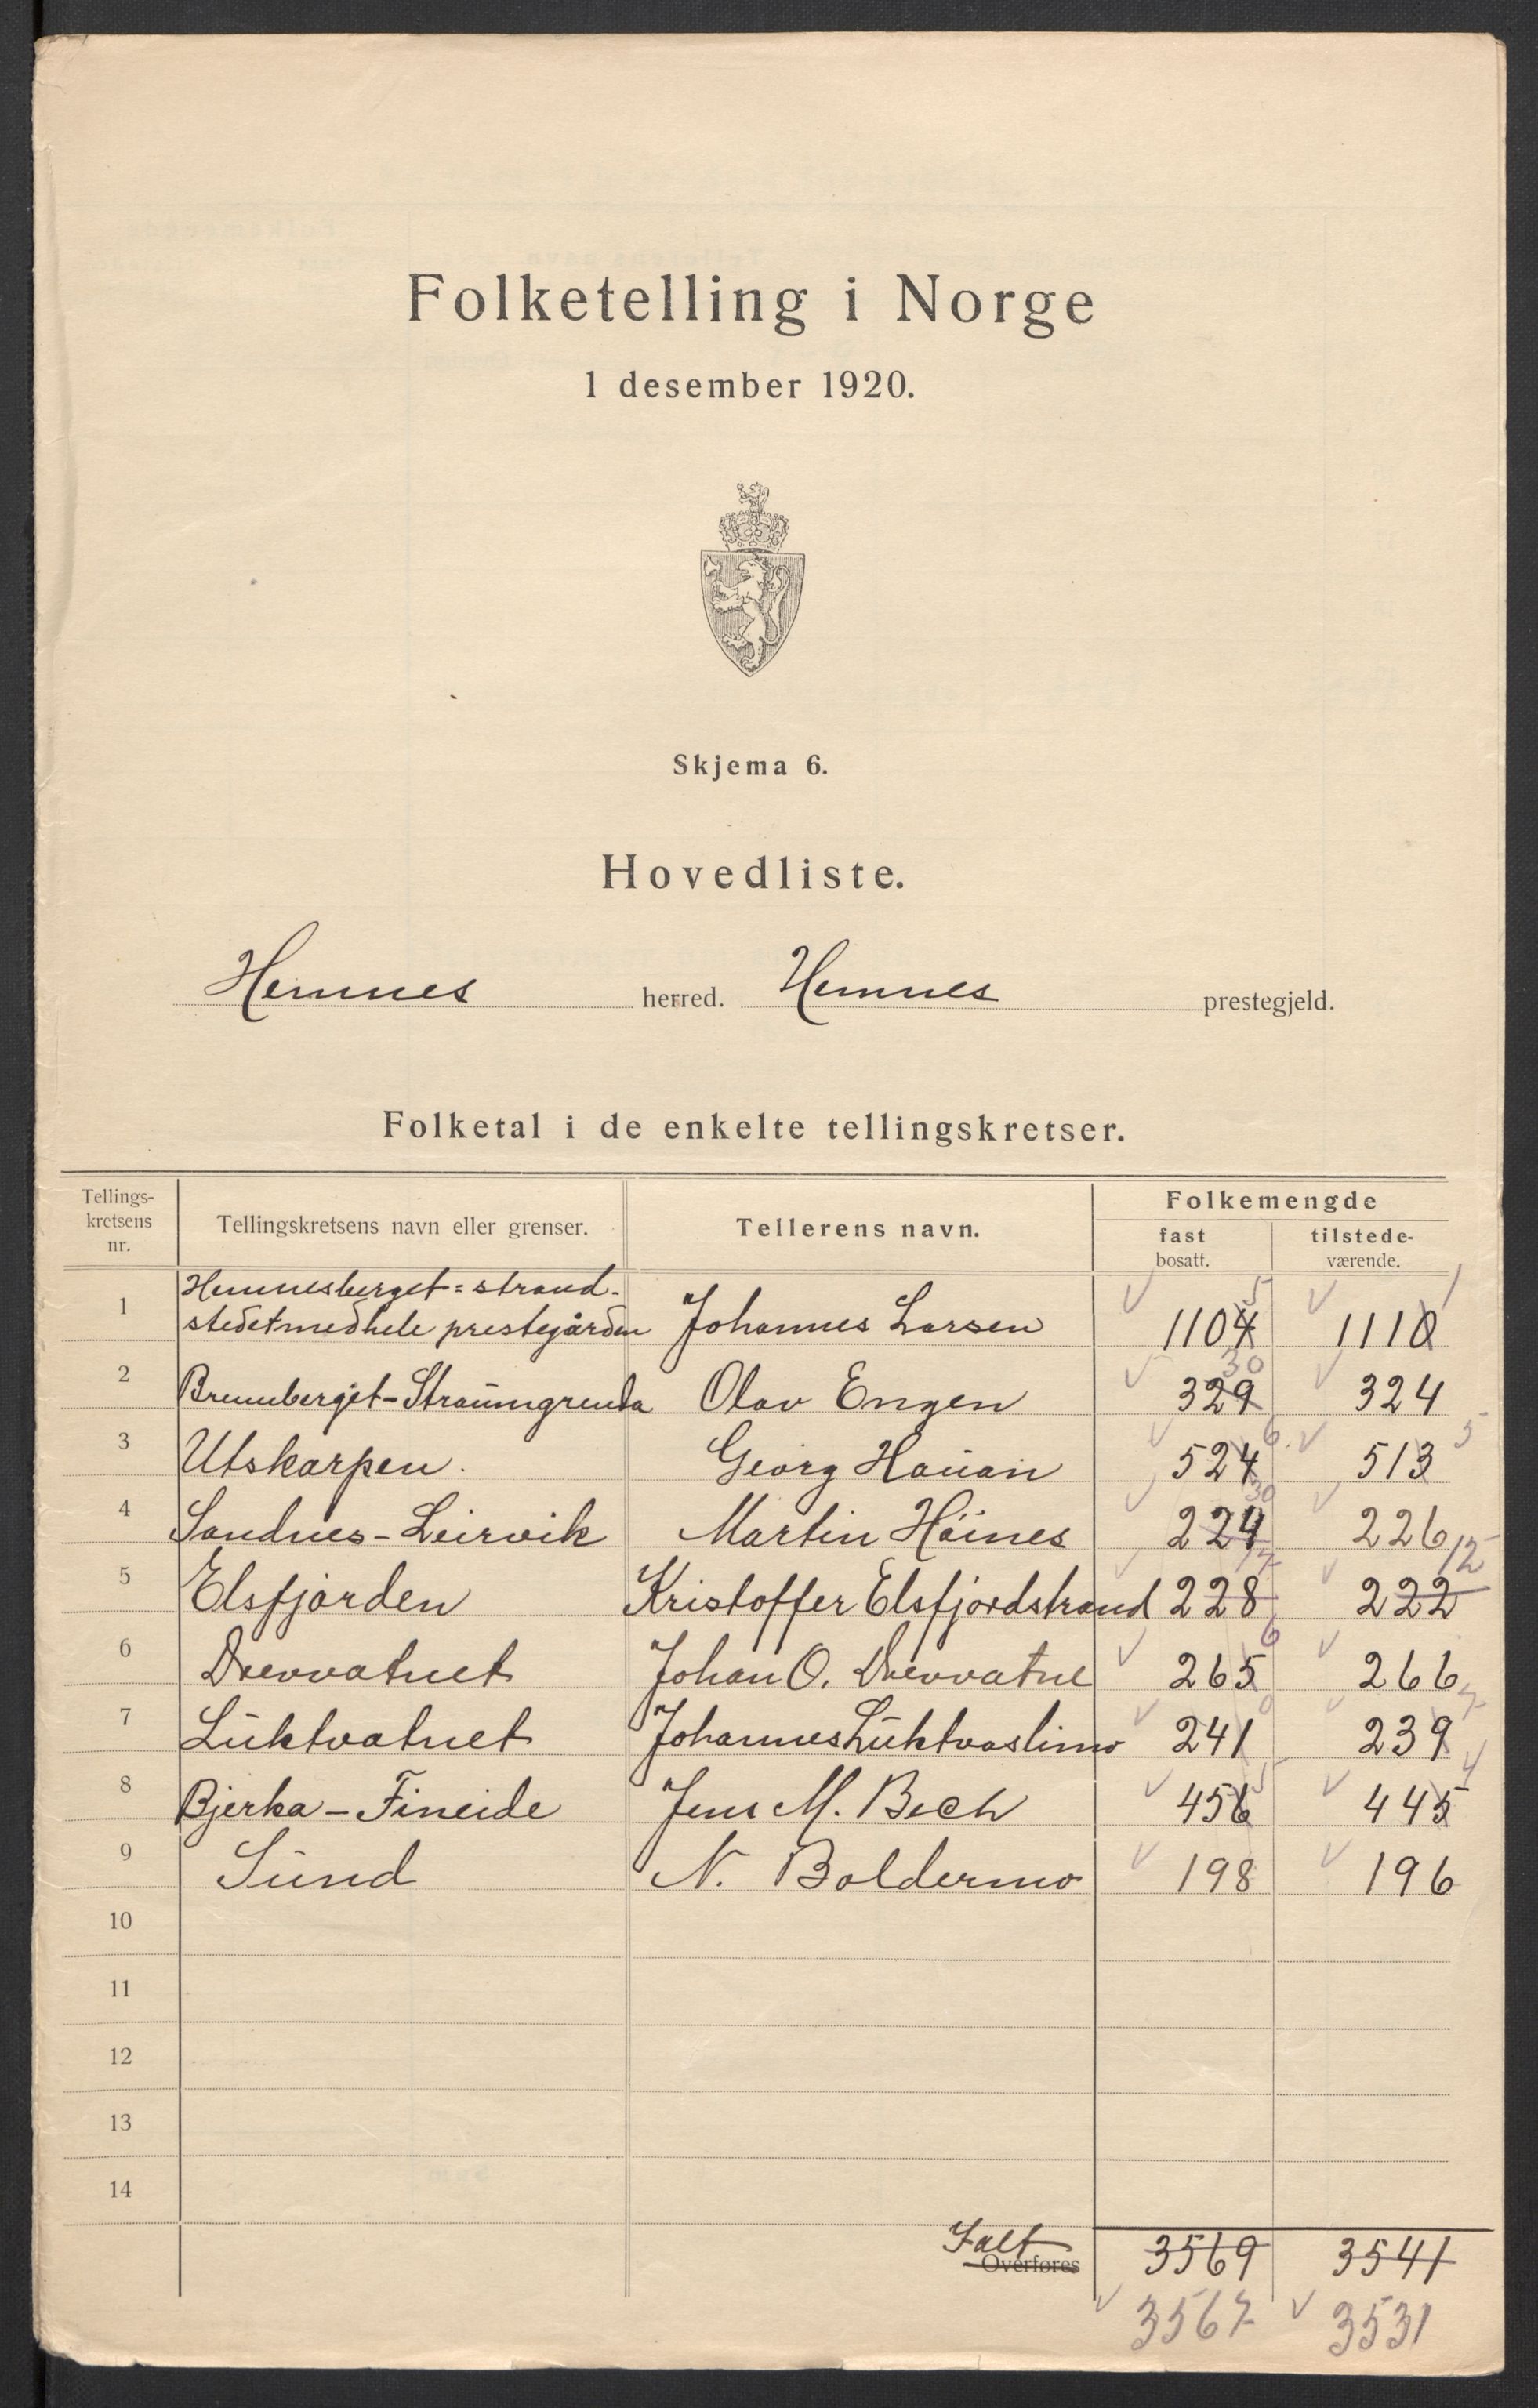 Folketelling i Norge
1 desember 1920.
Skjema 6.
Hovedliste.
Hemnes herred. Hemnes prestegjeld.
Folketal i de enkelte tellingskretser.
Tellings-kretsens nr. Tellingskretsens navn eller grenser. Tellerens navn. Folkemengde
fast bosatt. tilstede-værende.
Hemnesberget = strand- 5 1
1 stedet med hele prestegården Johannes Larsen 1104 1110
30
2 Brennberget-Straumgrenda Olav Engen 329 324
6 5
3 Utskarpen. Georg Hauan 524 513
30
4 Sandnes-Leirvik Martin Höines 224 226
17 12
5 Elsfjorden Kristoffer Elsfjordstrand 228 222
6
6 Drevvatnet Johan O. Drevvatne 265 266
0 7
7 Luktvatnet Johannes Luktvaslimo 241 239
5 4
8 Bjerka-Fineide Jens M. Bech 456 445
9 Sund N. Boldermo 198 196
10
11
12
13
14
Ialt
Overføres 3569 3541
3567 3531